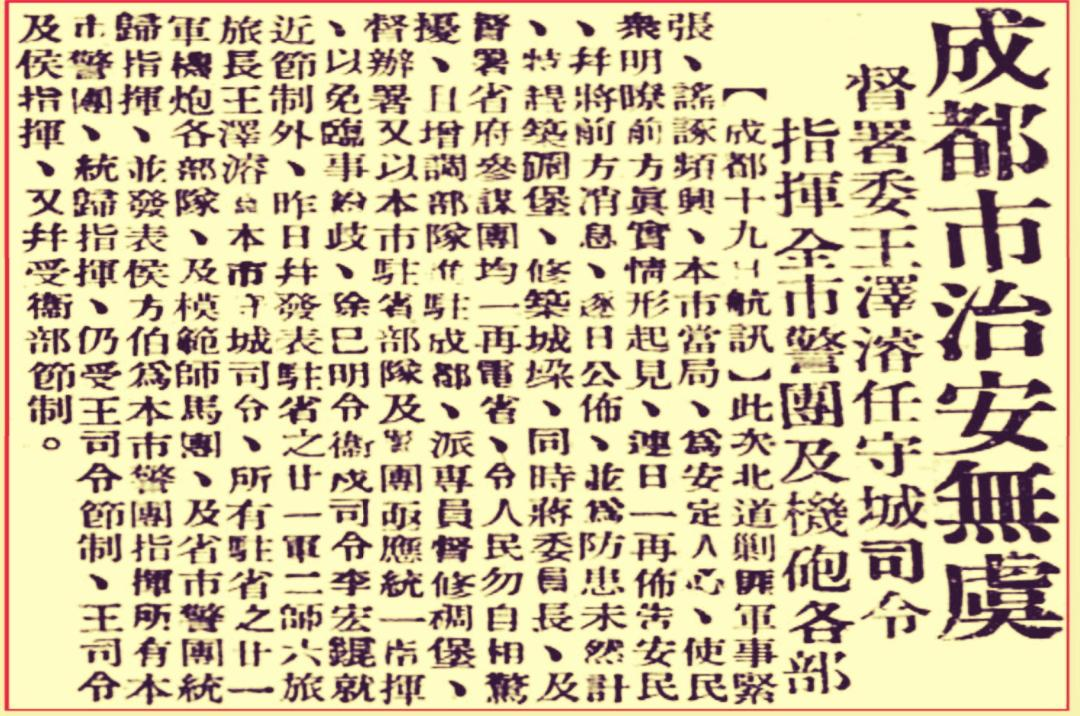 成都市治安無虞
督署委王澤濬任守城司令
指揮全市警團及機砲各部
【成都十九日航訊】此次北道剿匪軍事緊
張、謠諑頻興、本市當局、爲安定人心、使民
衆明瞭前方眞實情形起見、連日一再佈告安民
、幷將前方消息、逐日公佈、並爲防患未然計
、特趕築碉堡、修築城垜、同時蔣委員長、及
督署省府參謀團均一再電省、令人民勿自相驚
擾、且增調部隊駐成都、派專員督修稠堡、
督辦署又以本市駐省部隊及警團亟應統一指揮
、以免臨事紛歧、除巳明令衞戍司令李宏錕就
近節制外、昨日幷發表駐省之廿一軍二師六旅
旅長王澤濬本市守城司令、所有駐省之廿一
軍機炮各部隊、及模範師馬團、及省市警團統
歸指揮、並發表侯方伯爲本市警團指揮所有本
市警團、統歸指揮、仍受王司令節制、王司令
及侯指揮、又幷受衞部節制。